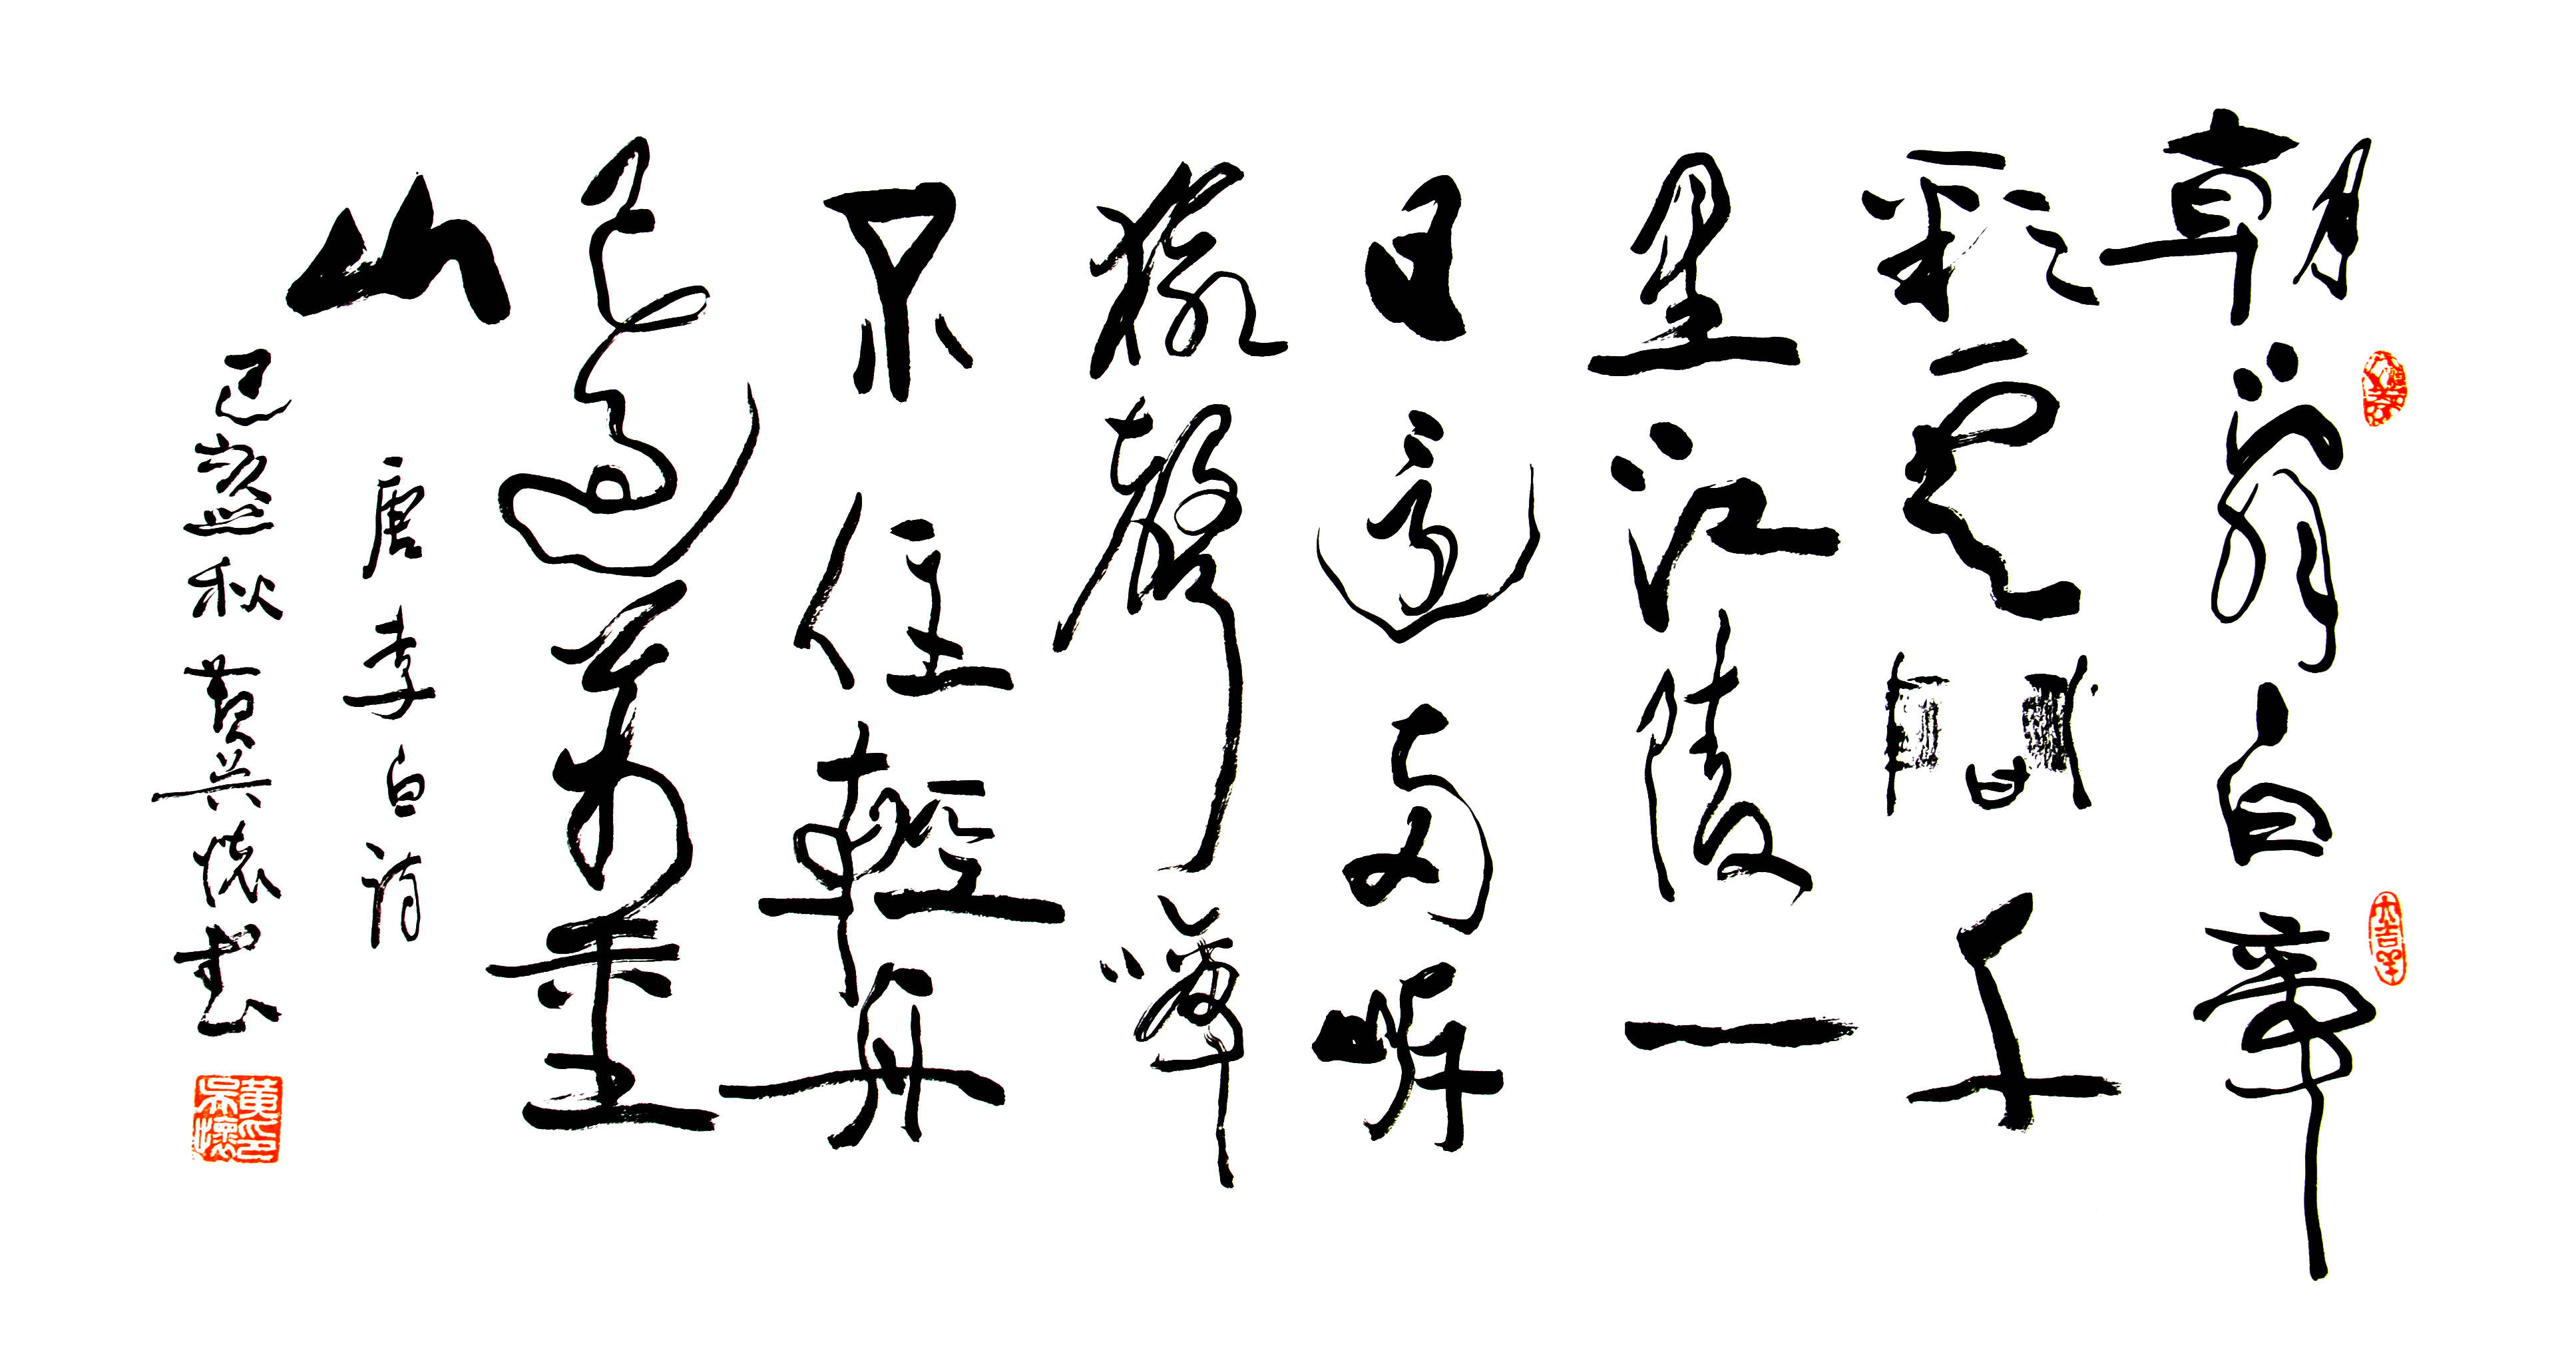 朝辭白帝
彩雲間千
里江陵一
日還兩岸
猿聲啼
不住輕舟
已過萬重
山
唐李白詩
己亥秋黃懷書
大吉羊